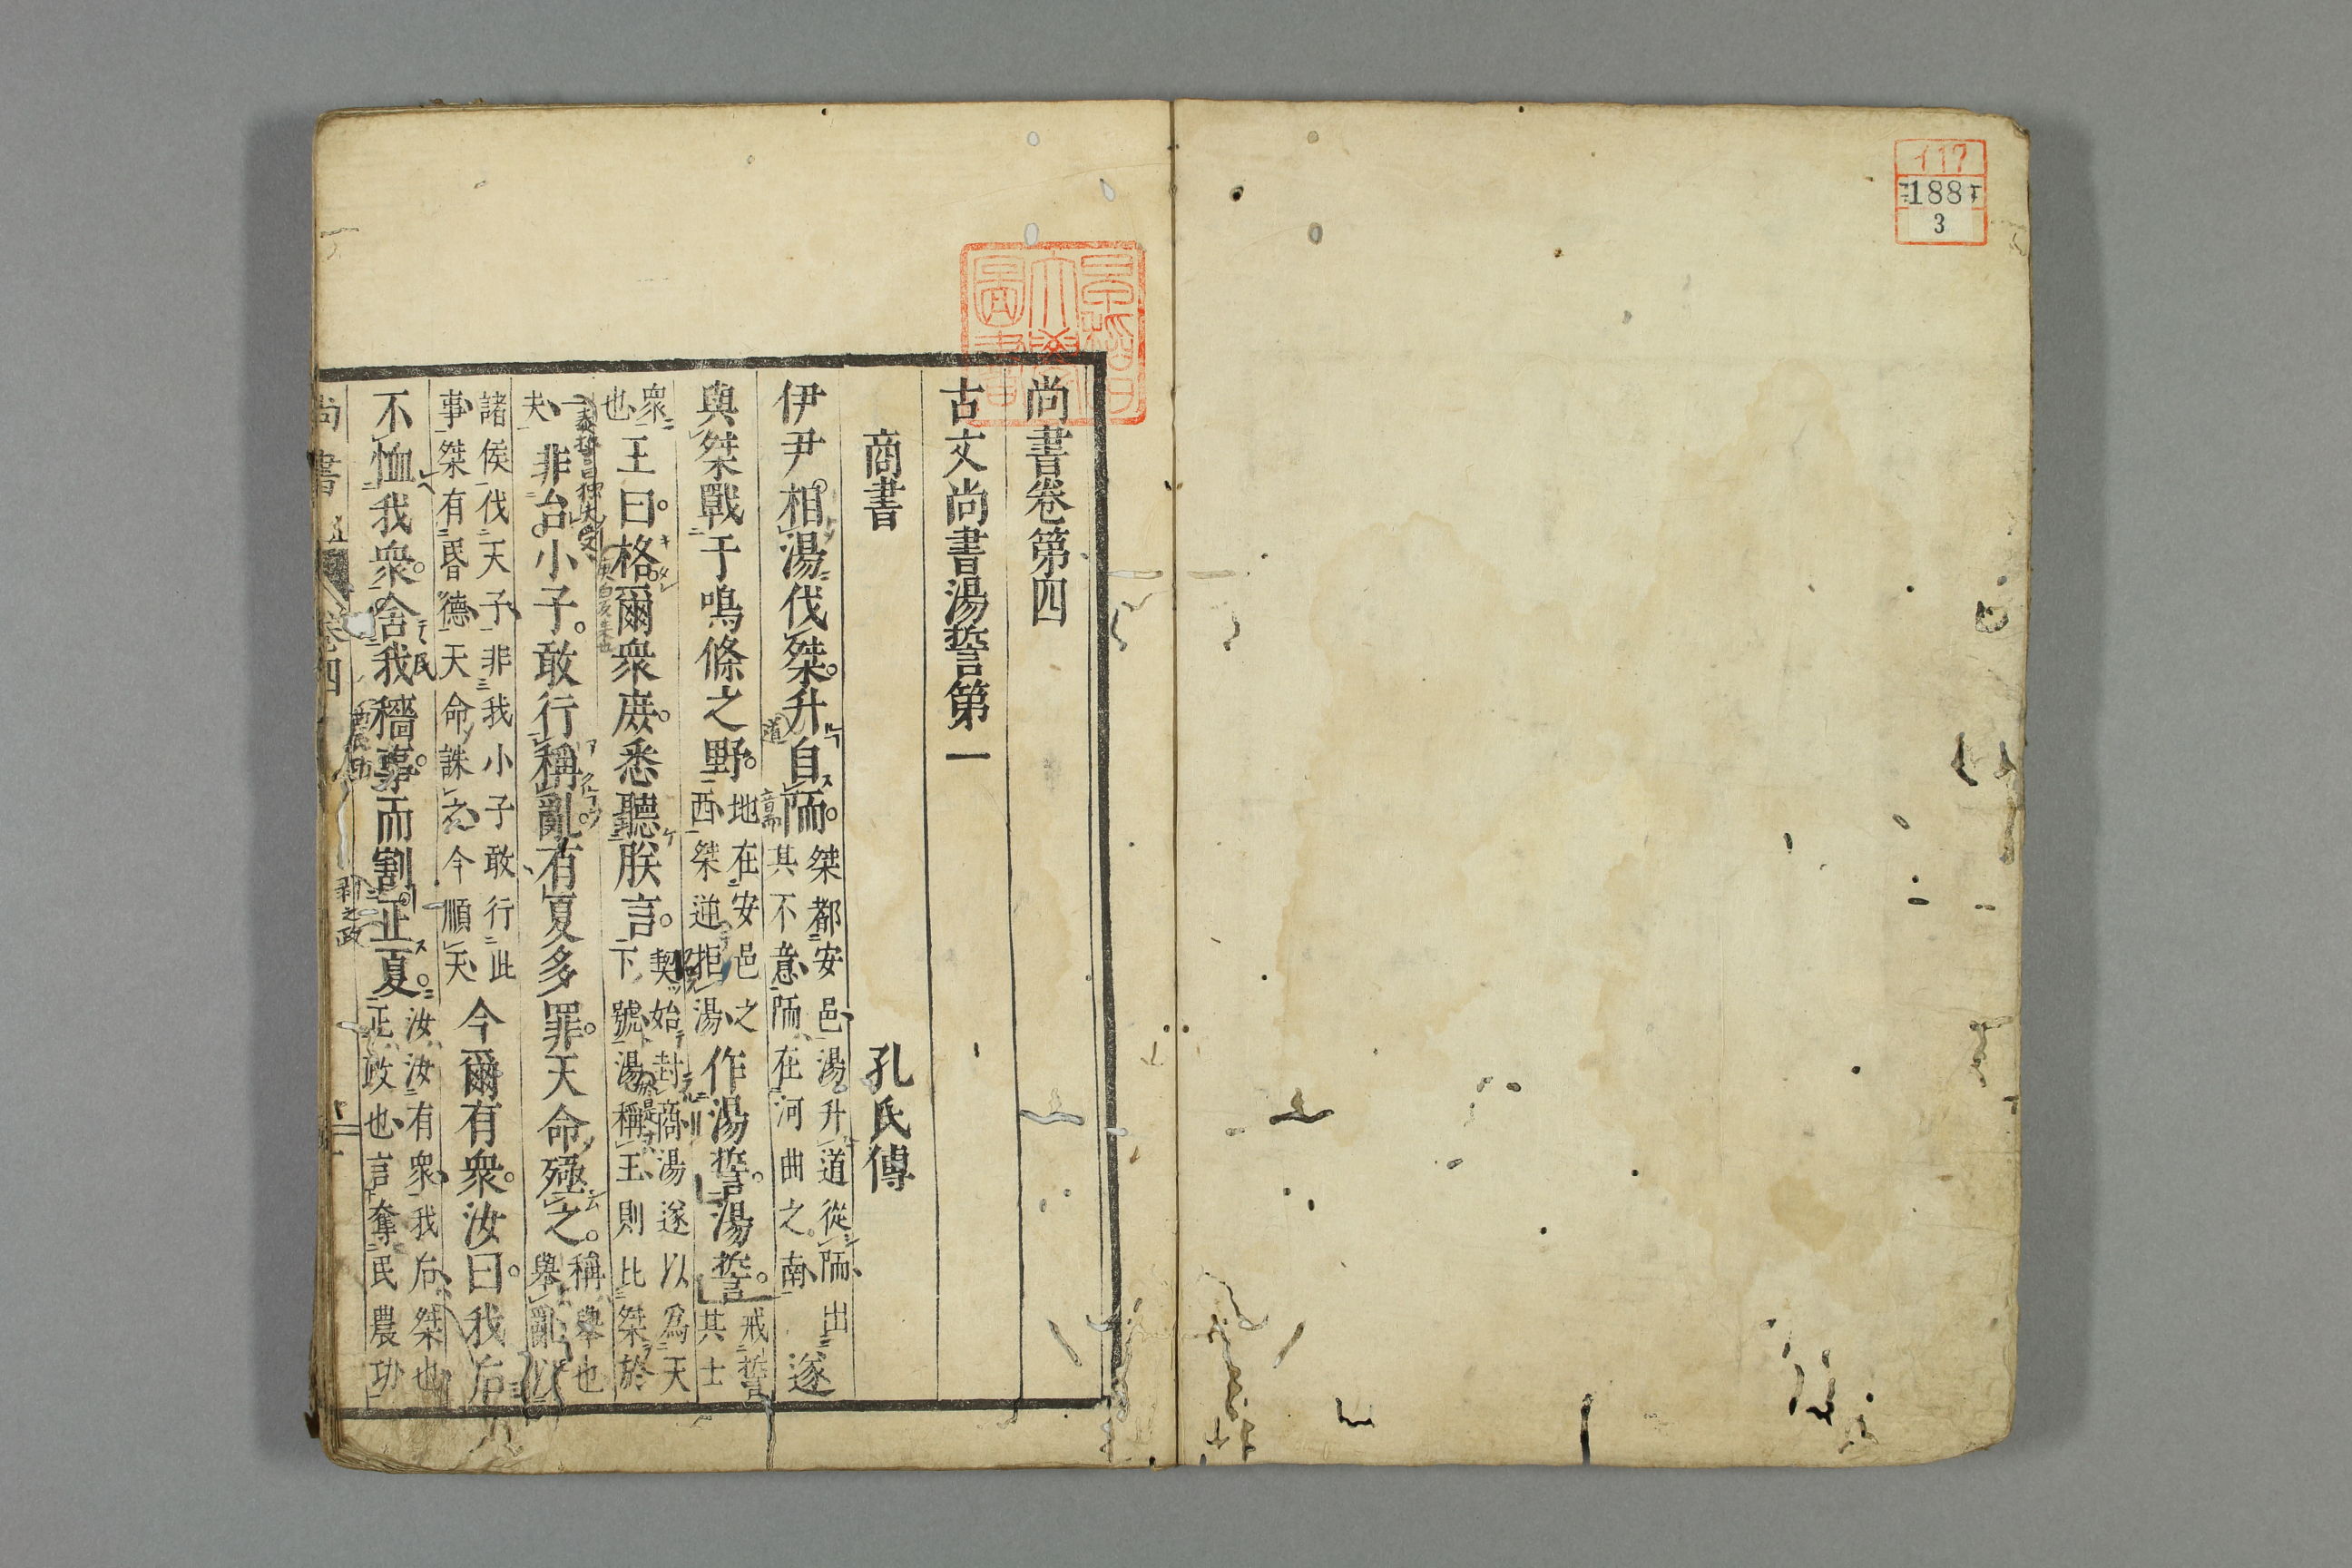 117
188
3
尚書卷第四
古文尚書湯誓第一
商書　孔氏傳
伊尹相湯伐桀升自陑桀都安邑湯升道從陑出其不意陑在河曲之南遂
與桀戰于鳴條之野地在安邑之西桀逆拒湯作湯誓湯誓戒誓其士
衆也王曰格爾衆庶悉聽朕言契始封商湯遂以爲天下號湯稱王則比桀於
一夫非台小子敢行稱亂有夏多罪天命殛之稱舉也舉亂以
諸侯伐天子非我小子敢行此事桀有昏德天命誅之今順天今爾有衆汝曰我后
不恤我衆舍我穡事而割正夏汝汝有衆我后桀也正政也言奪民農功
尚書
卷四